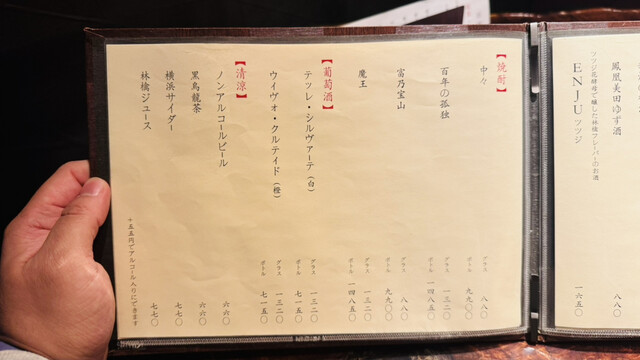 鳳凰美田ゆず酒 八八〇
ツツジ花酵母で醸した林檎フレーバーのお酒
ENJU ツツジ 一六五〇
【焼酎】
中々 グラス 八八〇
ボトル 九九〇〇
百年の孤独 グラス 一三二〇
ボトル 一四八五〇
富乃宝山 グラス 八八〇
ボトル 九九〇〇
魔王 グラス 一三二〇
ボトル 一四八五〇
【葡萄酒】
テッレ・シルヴァーテ（白） グラス 一三二〇
ボトル 七一五〇
ウィヴォ・クルテイド（橙） グラス 一三二〇
ボトル 七一五〇
【清涼】
ノンアルコールビール 六六〇
黒烏龍茶 六六〇
横浜サイダー 七七〇
林檎ジュース 七七〇
+五五円でアルコール入りにできます